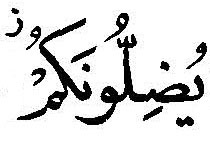 يُضِلُّونَكُمْ ز